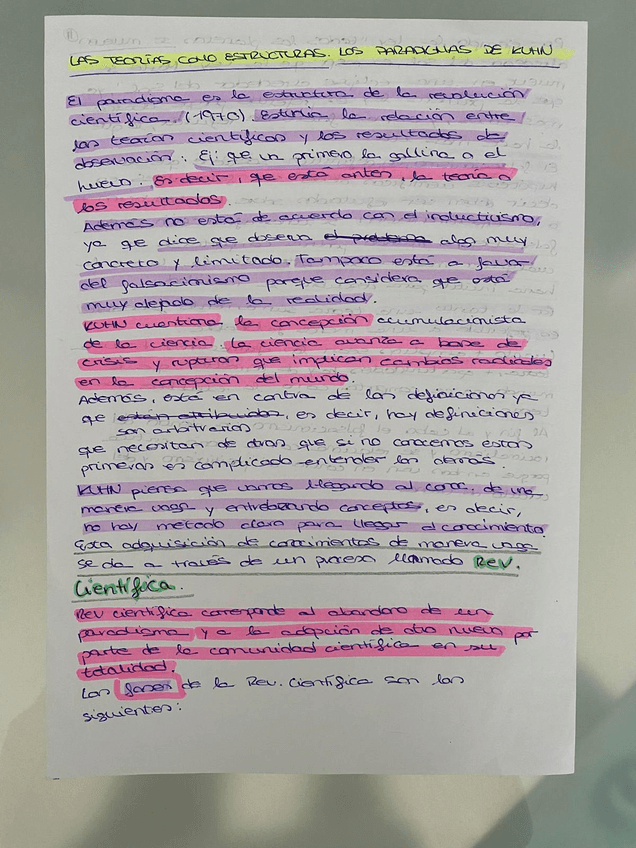 LAS TEORÍAS COMO ESTRUCTURAS. LOS PARADIGMAS DE KUHN
El paradigma es la estructura de la revolución
científica, (1970). Estudia la relación entre
las teorías científicas y los resultados de
observación. Ej: que va primero la gallina o el
huevo. Es decir, que está antes, la teoría o
los resultados.
Además no está de acuerdo con el inductivismo,
ya que dice que observa algo muy
concreto y limitado. Tampoco está a favor
del falsacionismo porque considera que está
muy alejado de la realidad.
KUHN cuestiona la concepción acumulacionista
de la ciencia. La ciencia avanza a base de
crisis y rupturas que implican cambios radicales
en la concepción del mundo.
Además, está en contra de las definiciones ya
que están atribuidas, es decir, hay definiciones
son arbitrarias
que necesitan de otras que si no conocemos estas
primeras es complicado entender las demás.
KUHN piensa que vamos llegando al cono. de una
manera vaga y entrelazando conceptos, es decir,
no hay metodo claro para llegar al conocimiento.
Esta adquisición de conocimientos de manera vaga
se da a través de un proceso llamado Rev.
Científica.
Rev científica corresponde al abandono de un
paradigma y a la adopción de otro nuevo por
parte de la comunidad científica en su
totalidad.
Las fases de la Rev. Científica son las
siguientes: